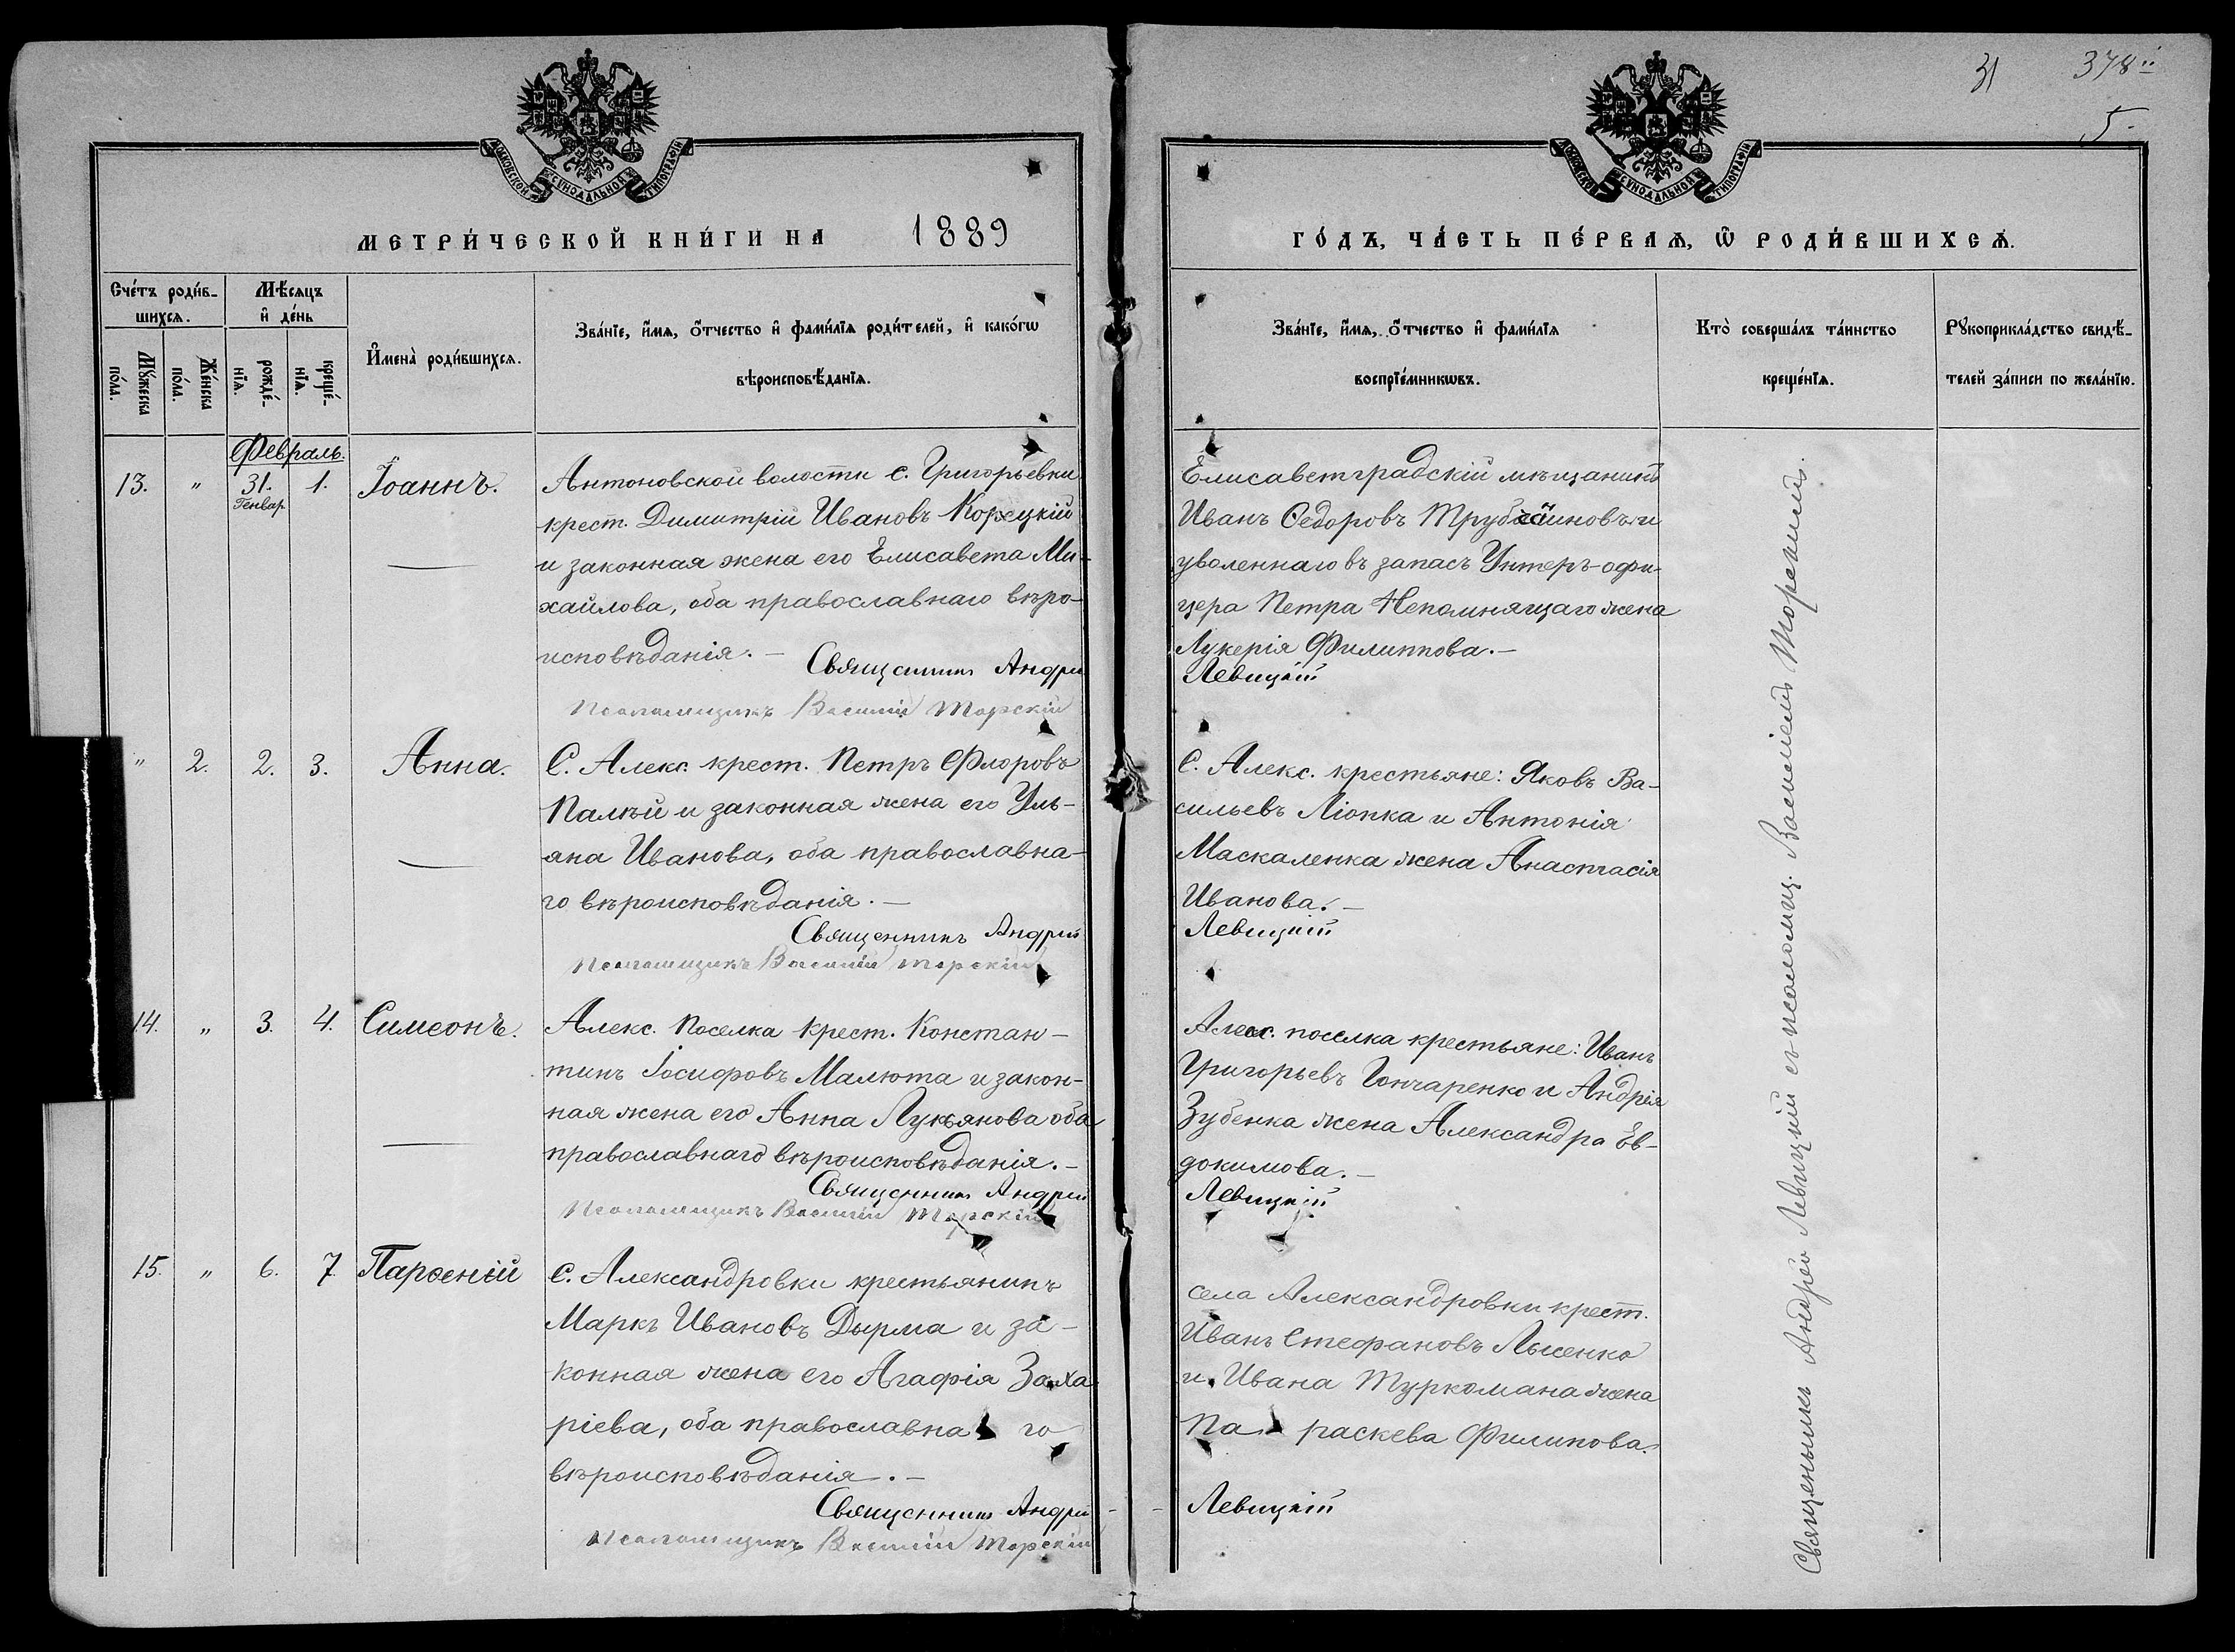 31 378
5.
МОСКОВСКОЙ СѴНОДАЛЬНОЙ ТИПОГРАФІИ
МОСКОВСКОЙ СѴНОДАЛЬНОЙ ТИПОГРАФІИ
МЕТРИ́ЧЕСКОЙ КНИ́ГИ НА 1889
ГО́ДЪ, ЧА́СТЬ ПЕ́РВАѦ, Ѽ РОДИ́ВШИХСѦ.
Сче́тъ роди́в-
шихсѧ.
Мѣ́сѧцъ
и҆ де́нь
Мꙋ́жеска
по́ла.
Же́нска
по́ла.
рожде́-
нїѧ.
креще́-
нїѧ.
И҆мена̀ роди́вшихсѧ.
Зва́нїе, и҆́мѧ, ѻ҆́тчество и҆ фами́лїѧ роди́телей, и҆ како́гѡ
вѣроисповѣ́данїѧ.
Зва́нїе, и҆́мѧ, ѻ҆́тчество и҆ фами́лїѧ
воспрїе́мникѡвъ.
Кто̀ соверша́лъ та́инство
креще́нїѧ.
Рꙋкоприкла́дство свидѣ́-
телей за́писи по жела́нїю.
Февраль.
13. " 31. 1. Іоаннъ.
Генвар.
Антоновской волости с. Григорьевки
крест. Димитрій Ивановъ Корецкій
и законная жена его Елисавета Ми-
хайлова, оба православнаго вѣро-
исповѣданія.—
Священникъ Андрій
Псаломщикъ Василій Торскій
Елисаветградскій мѣщанинъ
Иванъ Ѳедоровъ и
уволеннаго въ запасъ Унтеръ-офи-
цера Петра Непомнящаго жена
Лукерія Филиппова.—
Левицкій
" 2. 2. 3. Анна.
С. Алекс. крест. Петръ Флоровъ
Палѣй и законная жена его Уль-
яна Иванова, оба православна-
го вѣроисповѣданія.—
Священникъ Андрій
Псаломщикъ Василій Торскій
С. Алекс. крестьяне: Яковъ Ва-
сильевъ Ліопка и Антонія
Маскаленка жена Анастасія
Иванова.—
Левицкій
14. " 3. 4. Симеонъ.
Алекс. Поселка крест. Констан-
тинъ Іосифовъ Малюта и закон-
ная жена его Анна Лукьянова оба
православнаго вѣроисповѣданія.—
Священникъ Андрій
Псаломщикъ Василій Торскій
Алекс. поселка крестьяне: Иванъ
Григорьевъ Гончаренко и Андрія
Зубенка жена Александра Ев-
докимова.—
Левицкій
15. " 6. 7. Парѳеній
С. Александровки крестьянинъ
Маркъ Ивановъ Дырма и за-
конная жена его Агафія Заха
ріева, оба православна го
вѣроисповѣданія.—
Священникъ Андрій
Псаломщикъ Василій Торскій
села Александровки крест.
Иванъ Стефановъ Лысенко
и Ивана Туркомана жена
Па раскева Филипова.
Левицкій
Священникъ Андрей Левицкій съ псаломщ. Василіемъ Торскимъ.